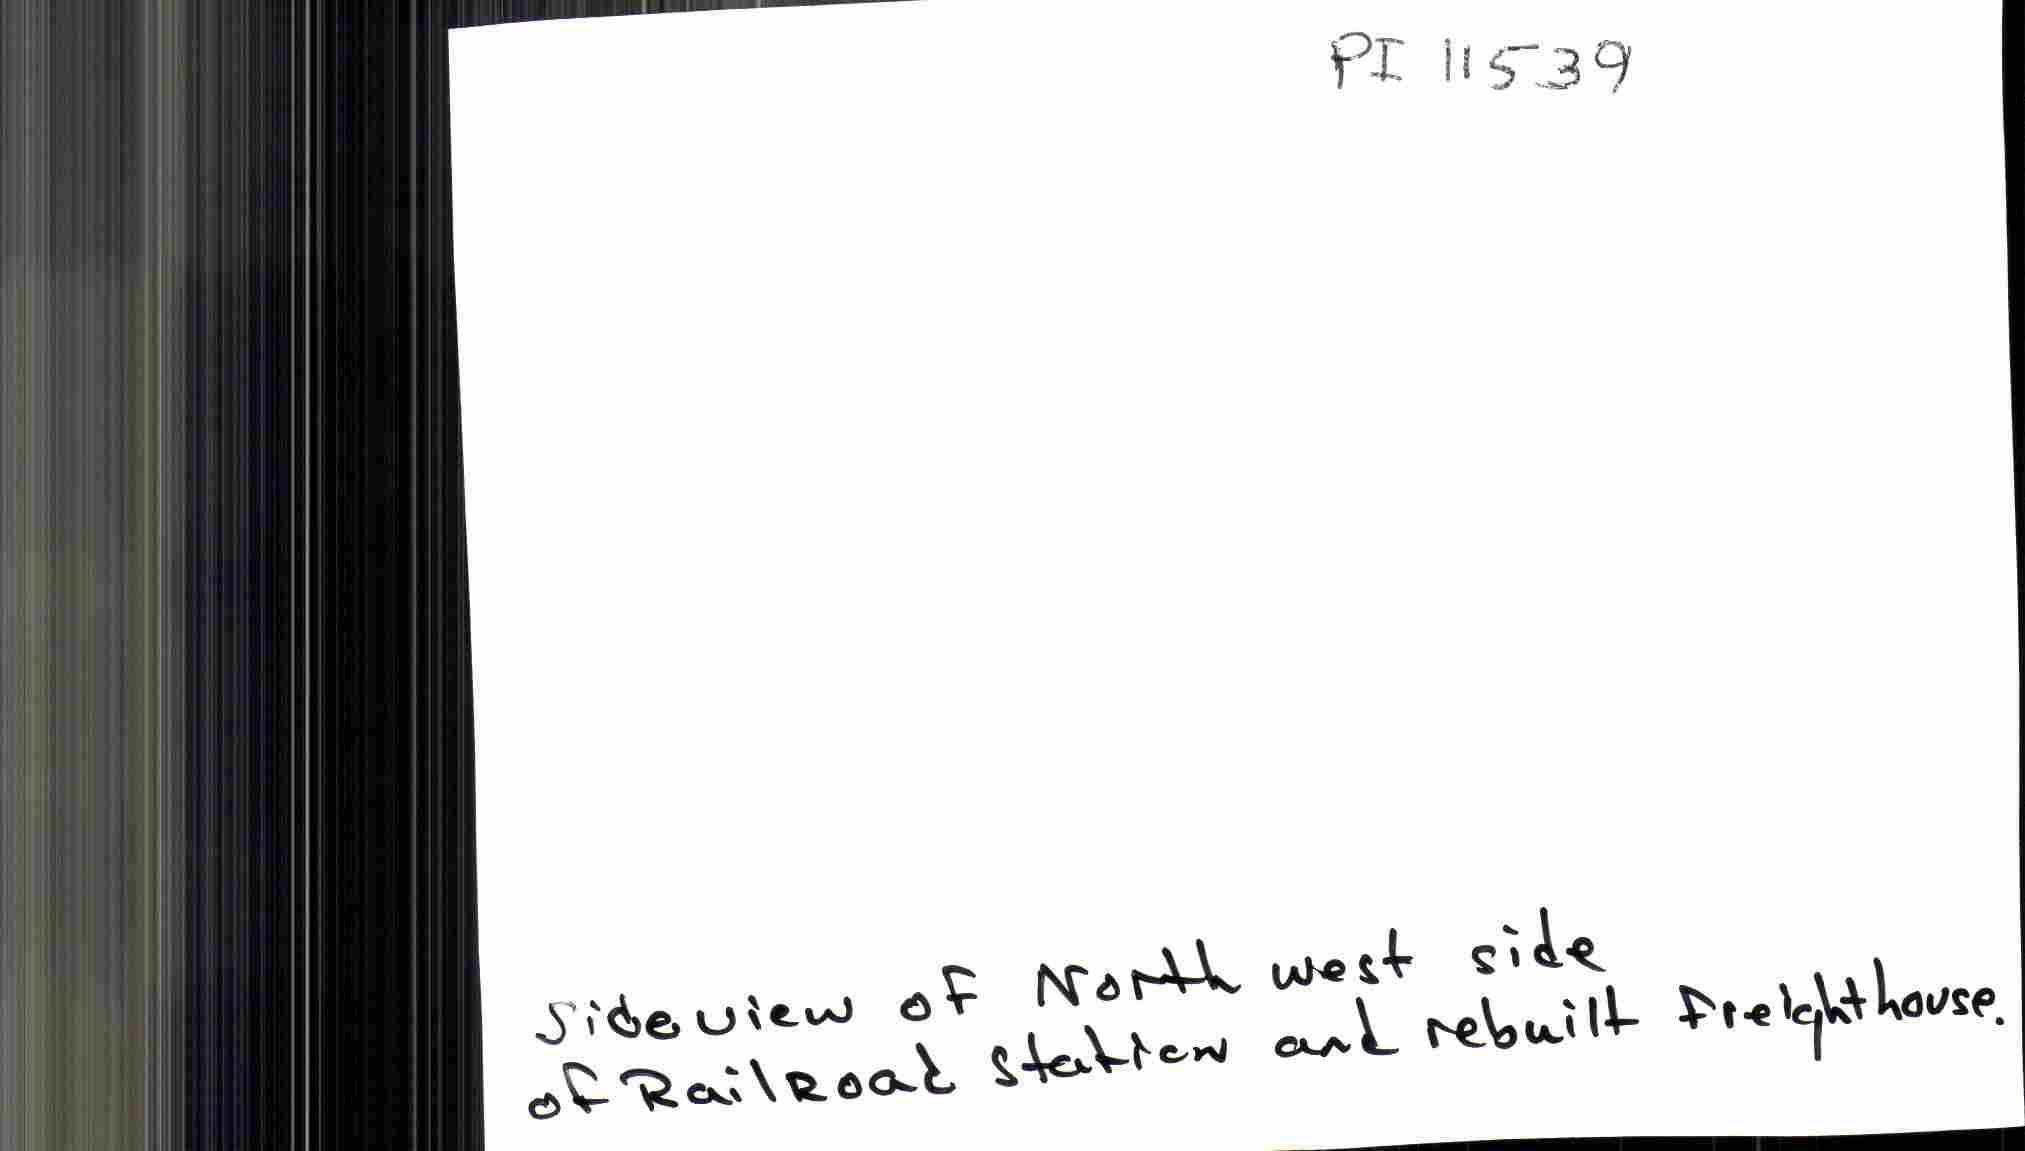 PI 11539
Sideview of North west side
of RailRoad station and rebuilt freighthouse.